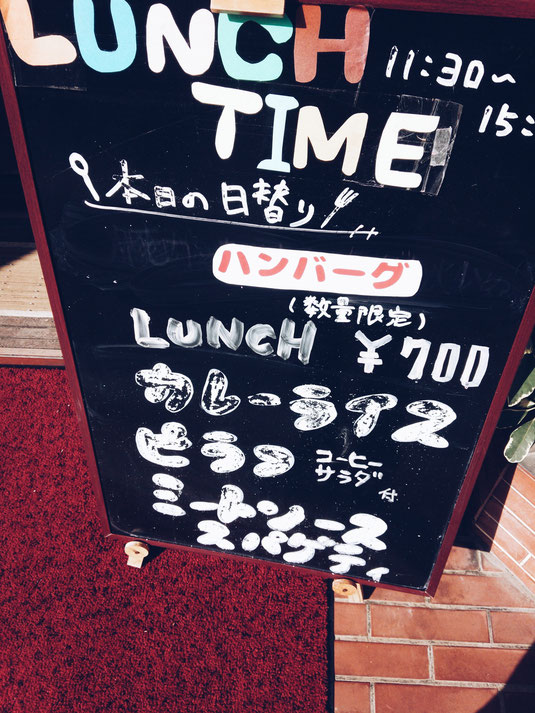 LUNCH
TIME
11:30~
15:
本日の日替り
ハンバーグ
(数量限定)
LUNCH ¥700
カレーライス
ピラフ
コーヒー
サラダ付
ミートソース
スパゲティ